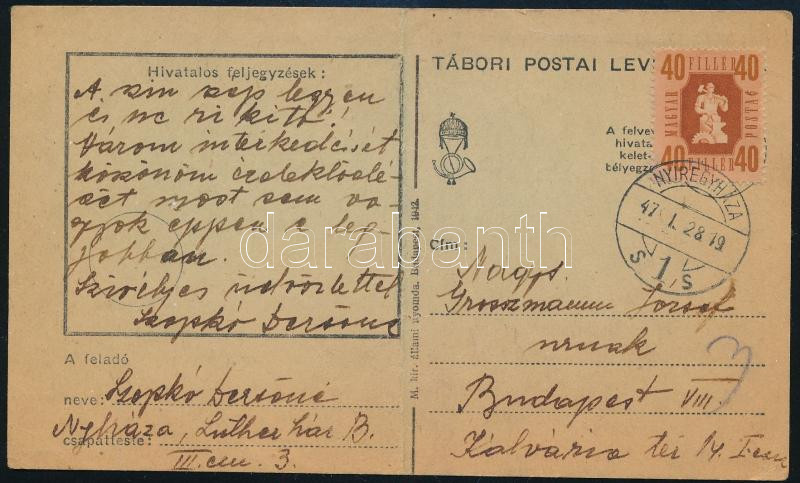 Hivatalos feljegyzések:
A szin szép legyen
és ne rikitó!
Várom intézkedését
köszönöm érdeklődé-
sét most sem va-
gyok éppen a leg-
jobban.
Szivélyes üdvözlettel
Szopkó Dersőné
A feladó
neve: Szopkó Dersőné
csapatteste: Nyháza, Luther ház B.
III. em. 3.
M. kir. állami nyomda. Budapest, 1942.
TÁBORI POSTAI LEV
A felve
hivata
kelet-
bélyegz
40 FILLÉR 40
MAGYAR POSTA
40 FILLÉR 40
NYIREGYHÁZA
47 I. 28 19
S 1 S
Cím:
Nagys.
Grosszmann József
urnak
Budapest VIII.
Kálvária tér 14. I. em
3
darabanth